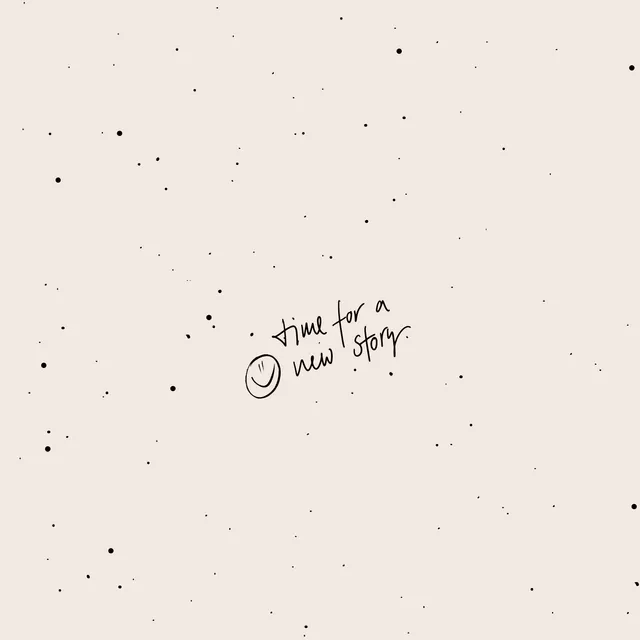 time for a
new story.